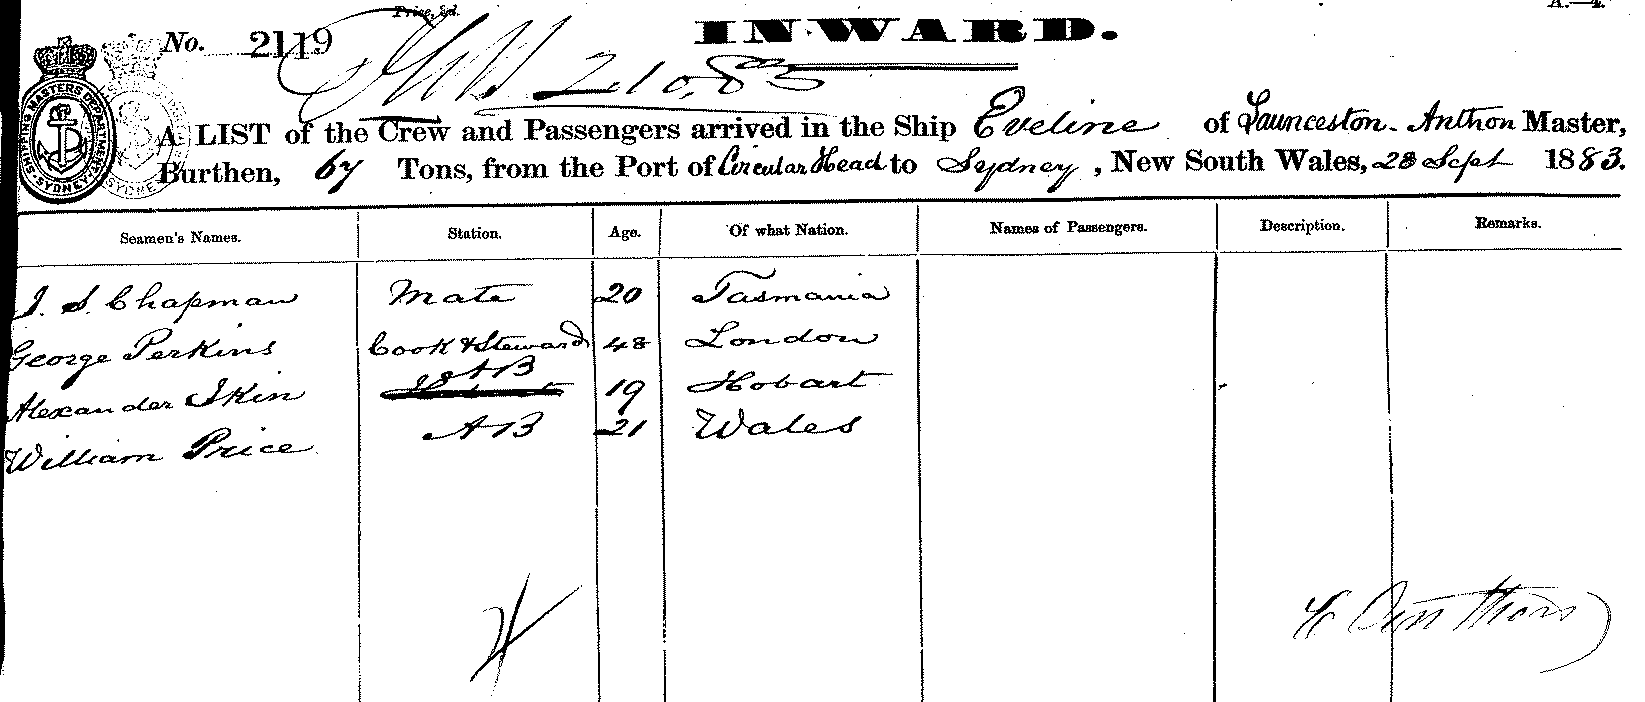 Price, 3d.
A.—4.
No. 2119
INWARD.
2.10.83
SHIPPING MASTERS DEPARTMENT SYDNEY
A LIST of the Crew and Passengers arrived in the Ship Eveline of Launceston - Anthon Master,
Burthen, 67 Tons, from the Port of Circular Head to Sydney, New South Wales, 28 Sept 1883.
Seamen's Names. Station. Age. Of what Nation. Names of Passengers. Description. Remarks.
J. S. Chapman Mate 20 Tasmania
George Perkins Cook & Steward 48 London
Alexander Ikin AB 19 Hobart
William Price AB 21 Wales